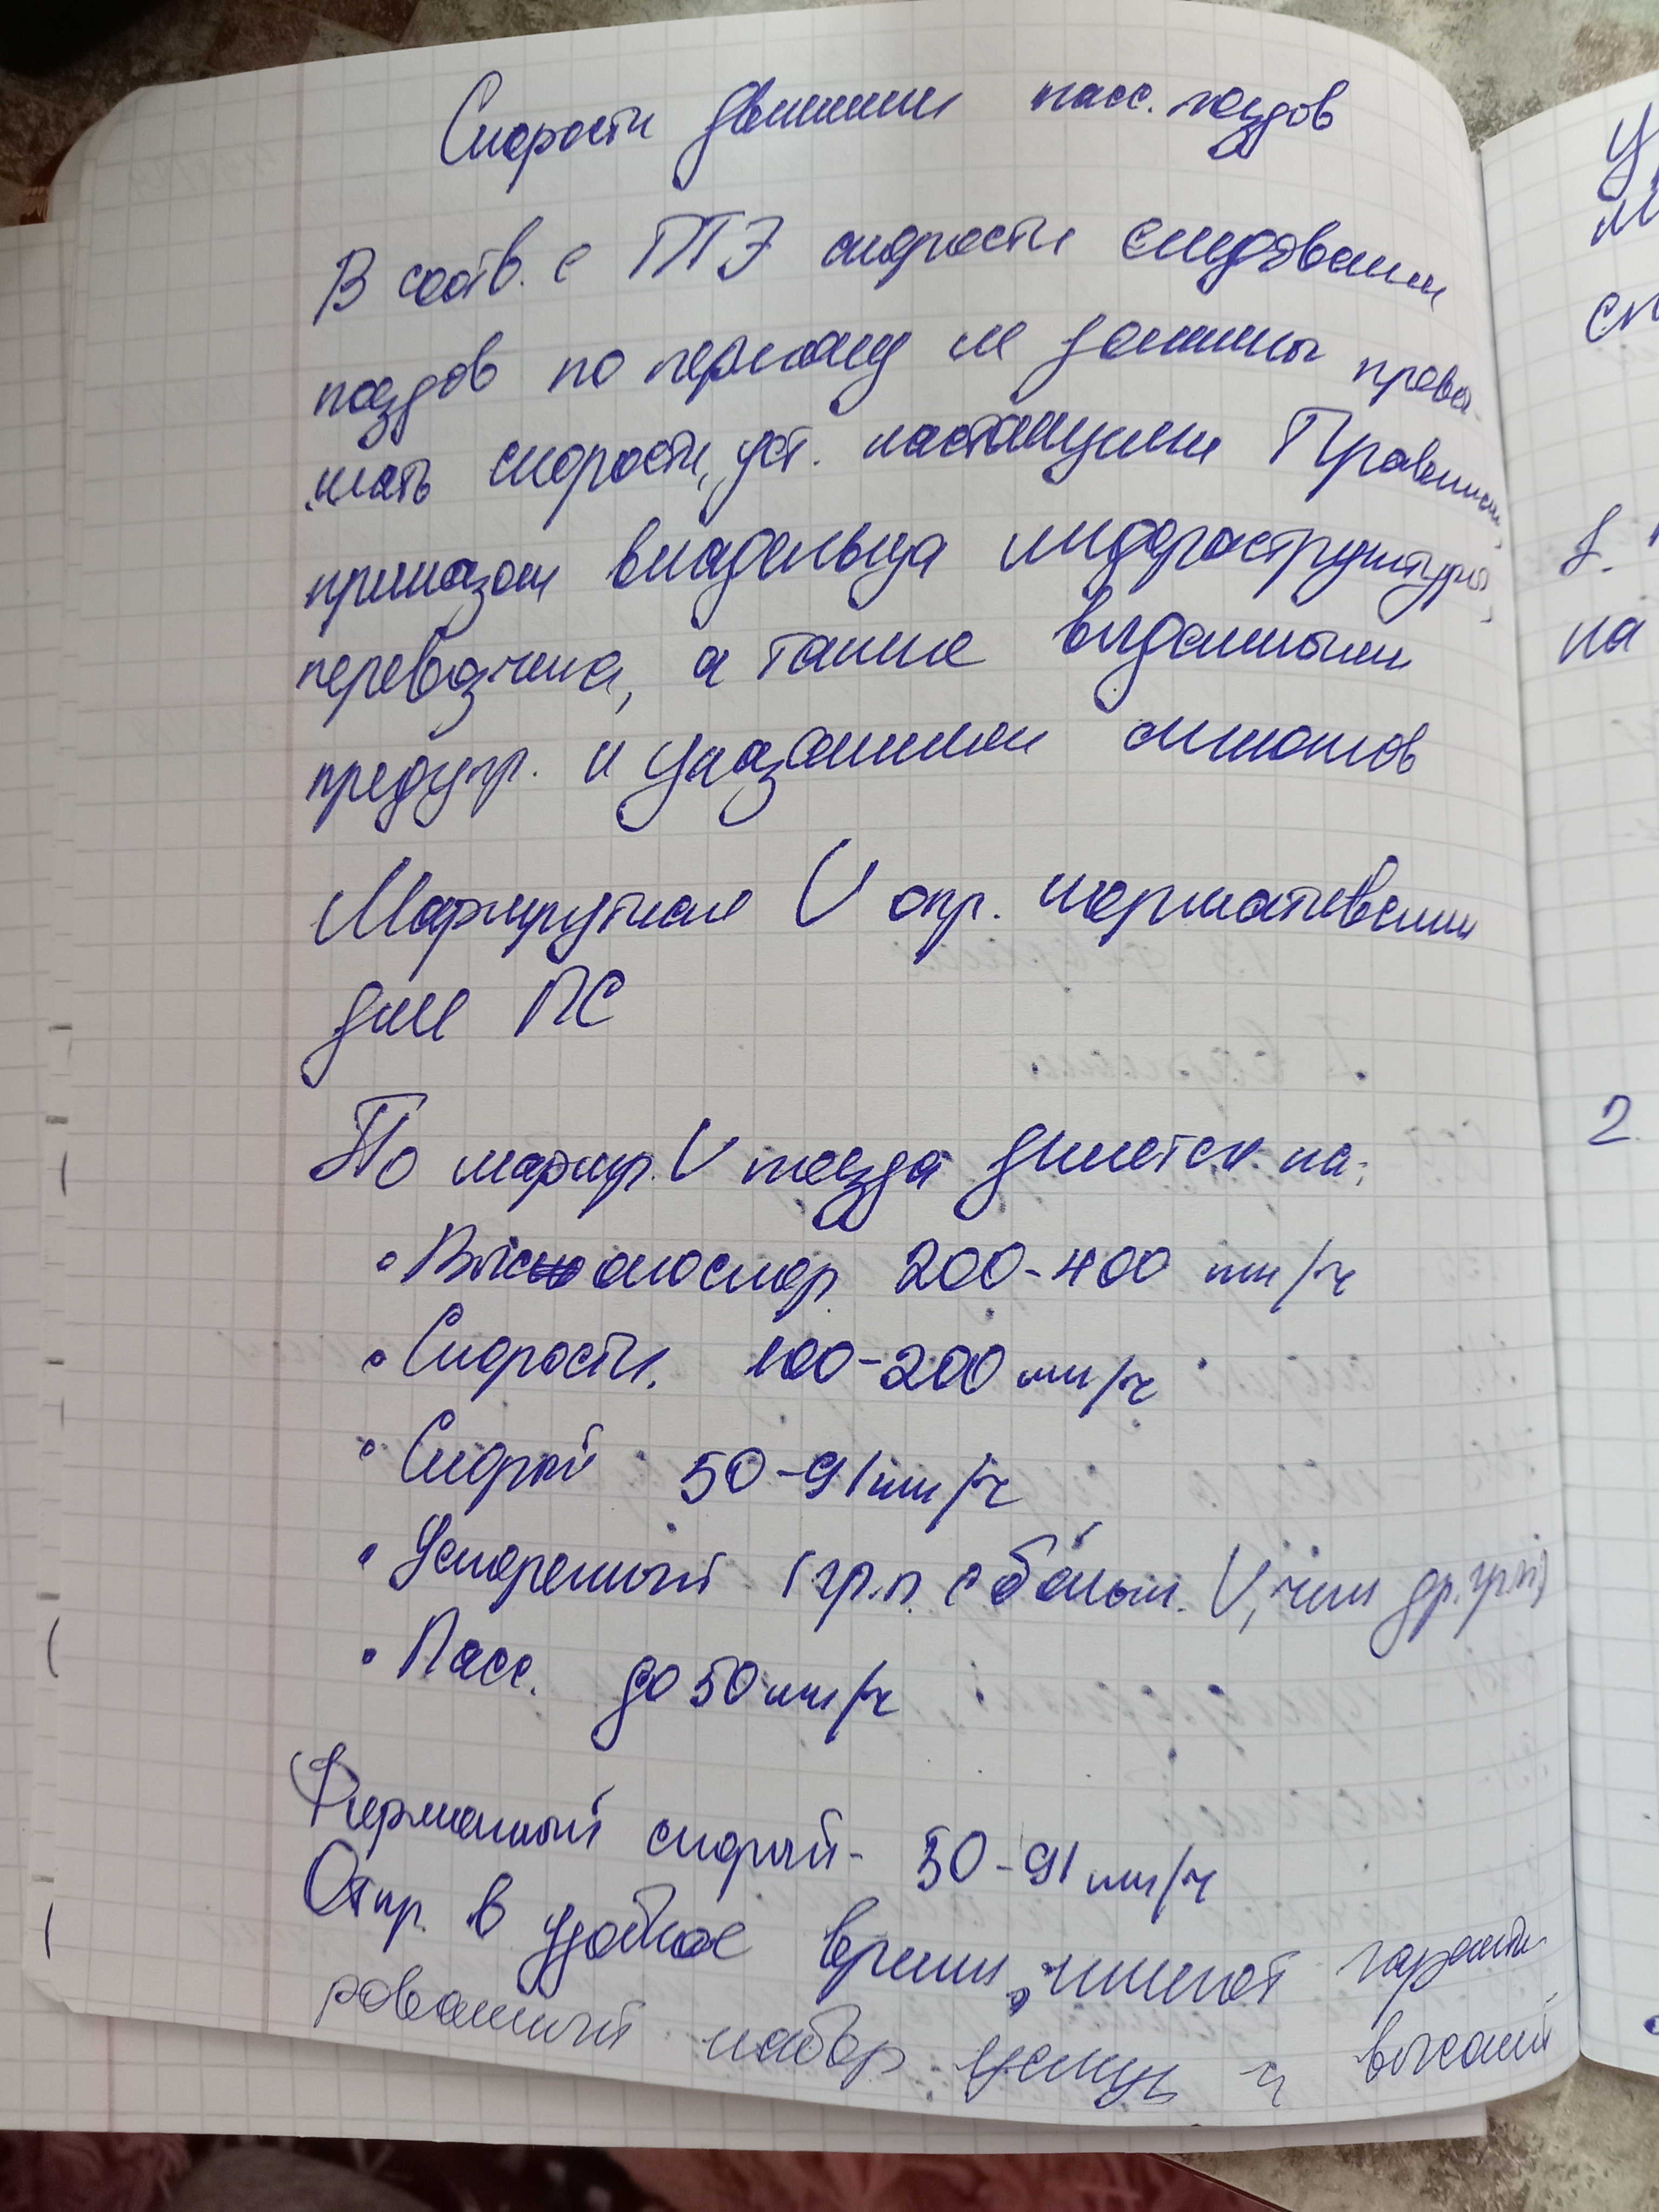 Скорости движения пасс. поездов
В соотв. с ПТЭ скорости следования
поездов по перегону не должны превы-
шать скорости, уст. настоящими Правилами,
приказом владельца инфраструктуры,
перевозчика, а также выданными
предупр. и указаниями сигналов
Маршрутная V опр. нормативами
для ПС
По маршр. V поезда делятся на:
• Высокоскор. 200-400 км/ч
• Скоростн. 100-200 км/ч
• Скорый 50-91 км/ч
• Ускоренный (гр.п. с больш. V, чем др. гр.п)
• Пасс. до 50 км/ч
Фирменный скорый - 50-91 км/ч
Отпр. в удобное время, имеют гаранти
рованный набор услуг и высокий
У
м
сл
на
2.